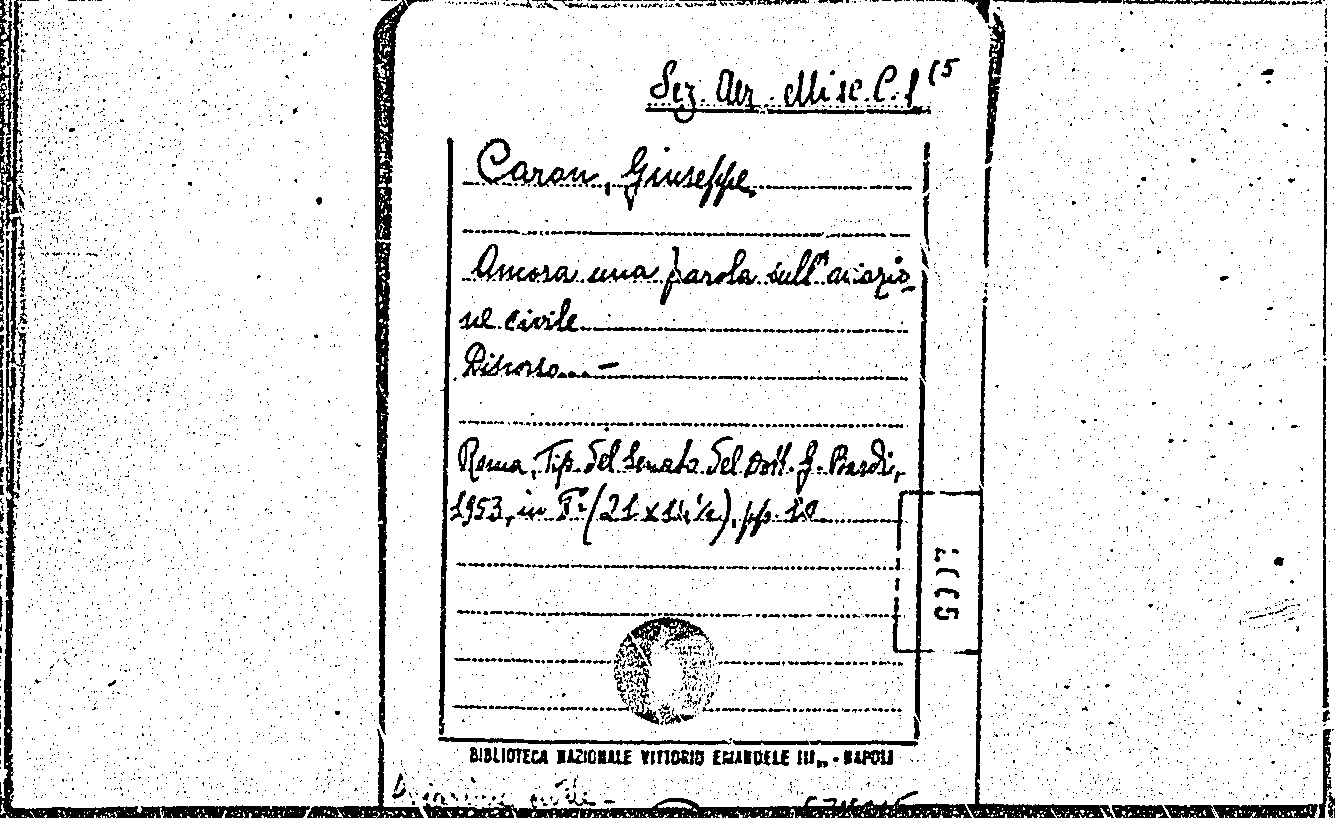 Sez. Aer. Misc. C. 1 (5
Caron, Giuseppe
Ancora una parola sull'aviazio-
ne civile
Discorso... -
Roma, Tip. del Senato del Dott. G. Bardi,
1953, in 8° (21 x 14½), pp. 10
BIBLIOTECA NAZIONALE VITTORIO EMANUELE III„ - NAPOLI
civile -